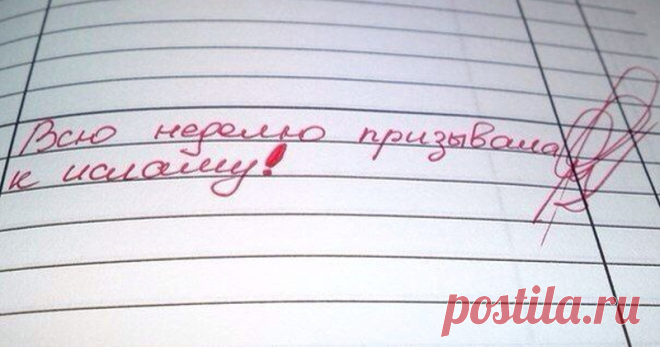 Всю неделю призывала
к исламу!
postila.ru